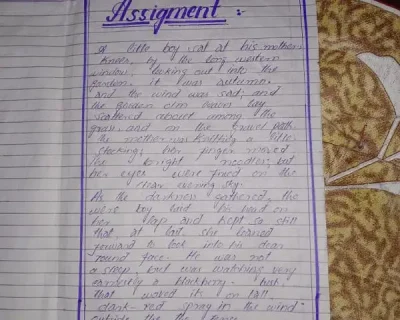 Assigment :
A little boy sat at his mother
knees, by the long western
window, looking out into the
garden. It was autumn,
and the wind was sad; and
the golden elm leaves lay
scattered about among the
grass, and on the gravel path.
The mother was knitting a little
stocking; her finger moved
the bright needles; but
her eyes were fixed on the
clear evening sky.
As the darkness gathered, the
wee boy laid his head on
her lap and kept so still
that, at last, she leaned
forward to look into his dear
round face. He was not
asleep, but was watching very
earnestly a blackberry - bush,
that waved its on tall,
dark-red spray in the wind
outside the the fence.